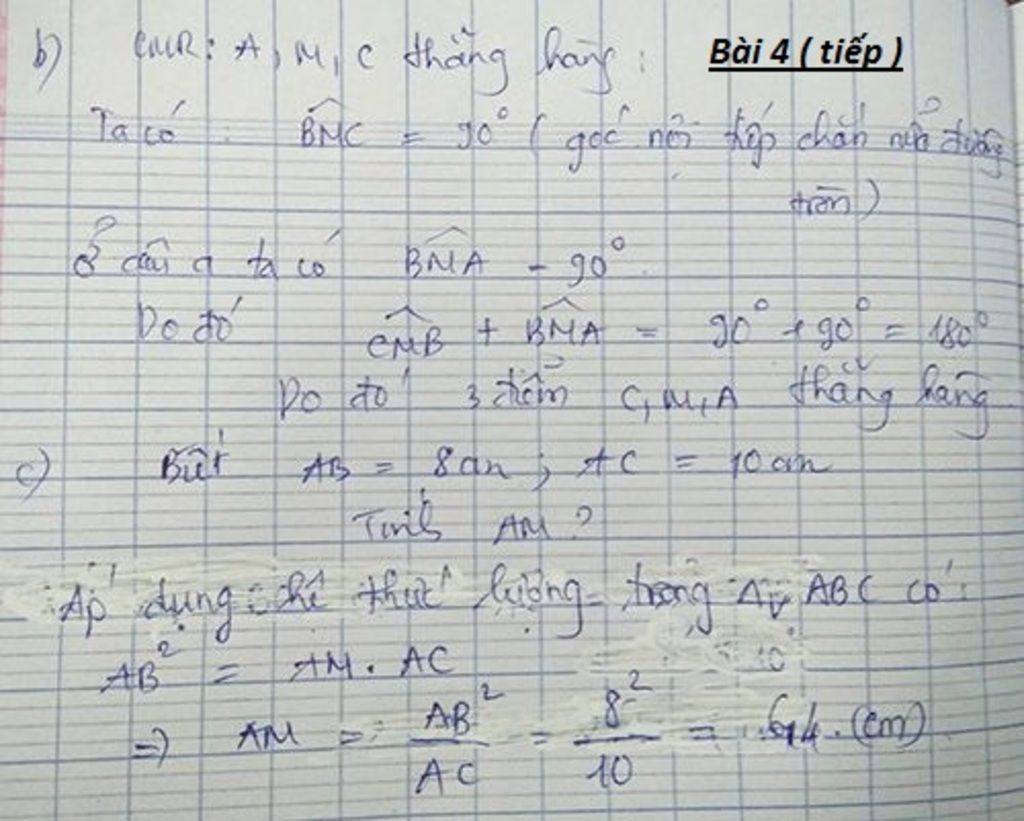 b) CMR: A, M, C thẳng hàng:
Bài 4 ( tiếp )
Ta có: BMC = 90° ( góc nội tiếp chắn nửa đường
tròn)
Ở câu a ta có BMA = 90°
Do đó CMB + BMA = 90° + 90° = 180°
Do đó 3 điểm C, M, A thẳng hàng
c) Biết AB = 8cm ; AC = 10cm
Tính AM ?
Áp dụng hệ thức lượng trong Δv ABC có:
AB² = AM . AC
=> AM = AB²/AC = 8²/10 = 6,4 (cm)